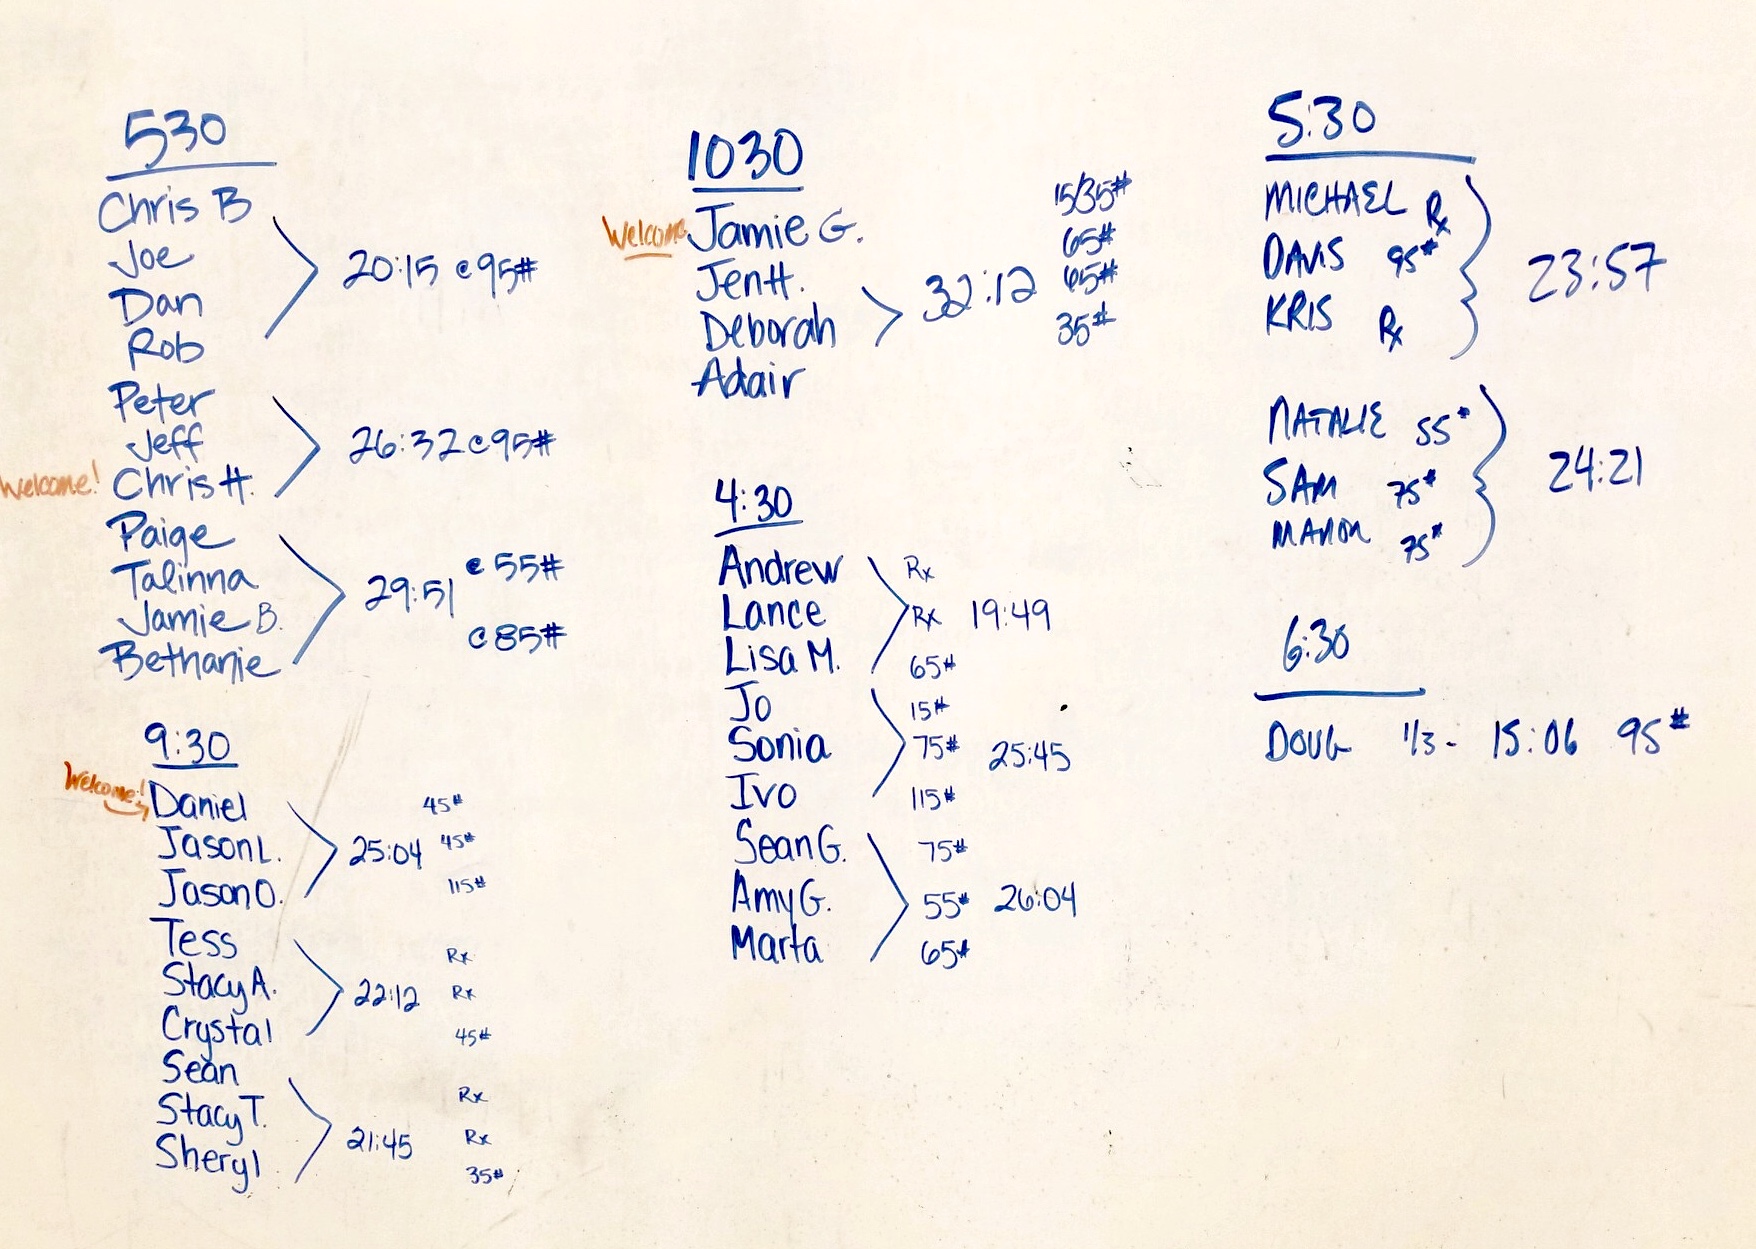 530
Chris B
Joe
Dan
Rob
20:15 @95#
Peter
Jeff
Welcome! Chris H.
26:32 @95#
Paige
Talinna
Jamie B.
Bethanie
29:51 @ 55#
@ 85#
9:30
Welcome! Daniel 45#
Jason L. 25:04 45#
Jason O. 115#
Tess Rx
Stacy A. 22:12 Rx
Crystal 45#
Sean Rx
Stacy T. 21:45 Rx
Sheryl 35#
1030
Welcome Jamie G. 15/35#
Jen H. 65#
Deborah 32:12 65#
Adair 35#
4:30
Andrew Rx
Lance Rx 19:49
Lisa M. 65#
Jo 15#
Sonia 75# 25:45
Ivo 115#
Sean G. 75#
Amy G. 55# 26:04
Marta 65#
5:30
MICHAEL Rx
DAVIS 95# 23:57
KRIS Rx
NATALIE 55#
SAM 75# 24:21
75#
6:30
DOUG 1/3- 15:06 95#